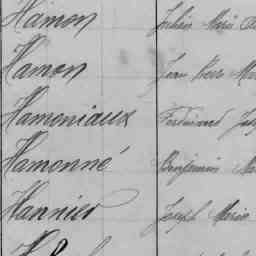 Hamon Julien Marie
Hamon Jean Marie
Hamoniaux Ferdinand
Hamonné Benjamin
Hannier Joseph Marie